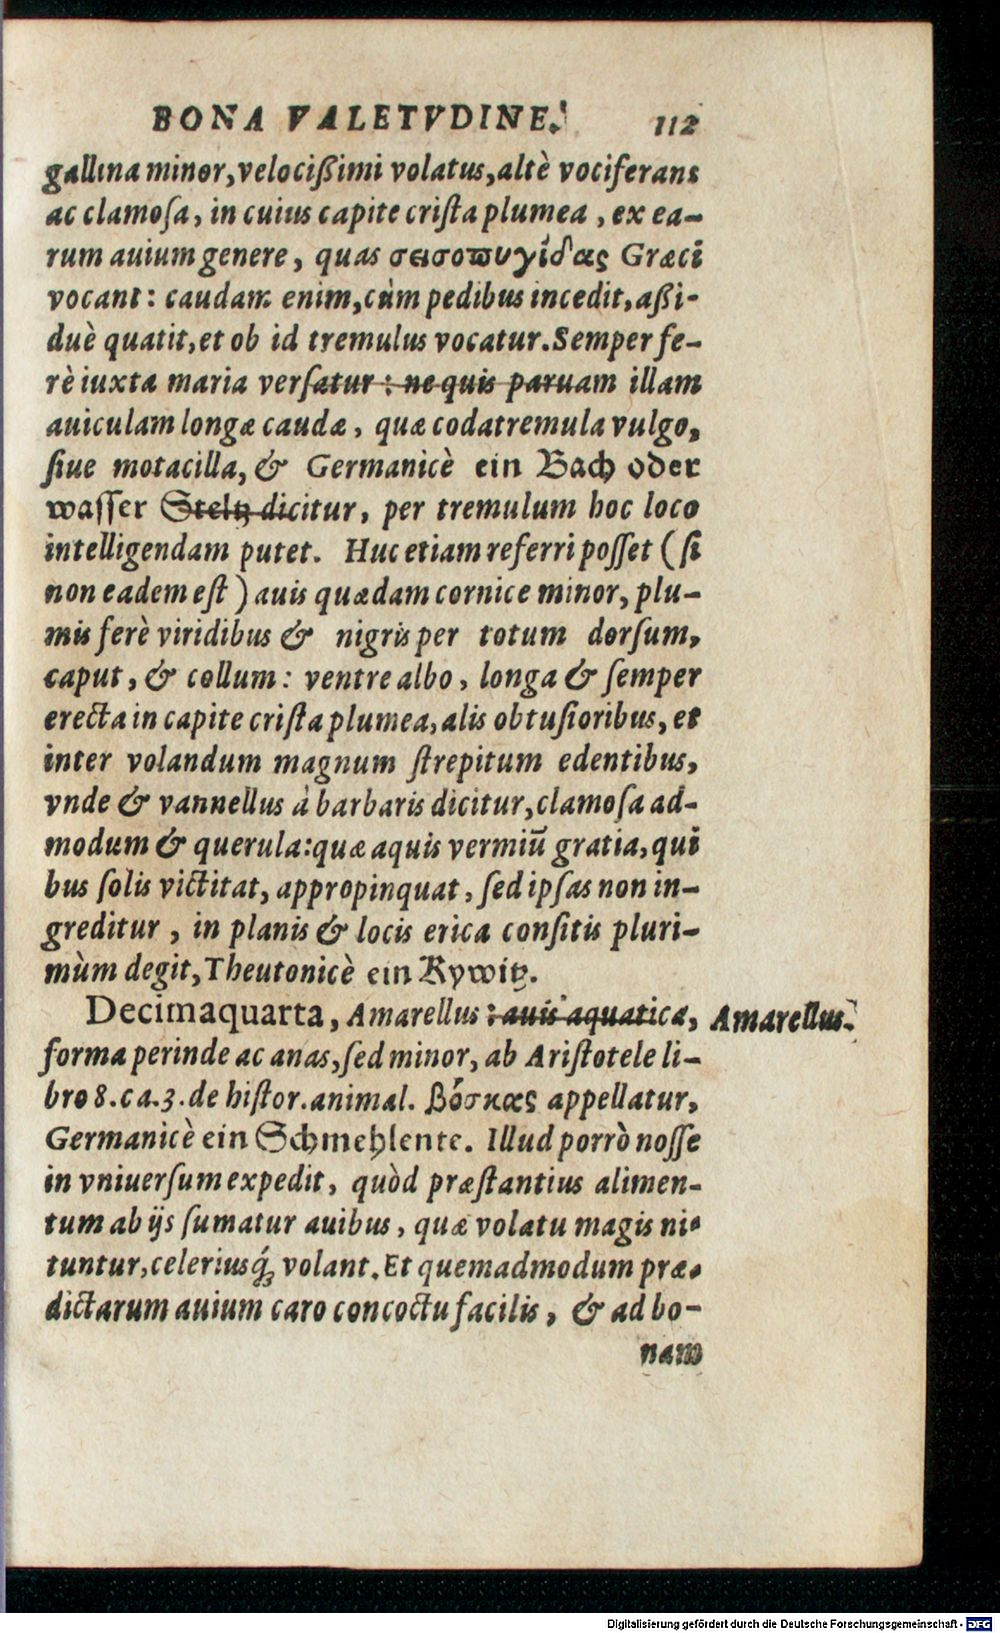 BONA VALETVDINE. 112
gallina minor, velocißimi volatus, altè vociferans
ac clamoſa, in cuius capite criſta plumea, ex ea-
rum auium genere, quas σεισοπυγίδας Græci
vocant: caudam enim, cùm pedibus incedit, aßi-
duè quatit, et ob id tremulus vocatur. Semper fe-
rè iuxta maria verſatur: ne quis paruam illam
auiculam longæ caudæ, quæ codatremula vulgo,
ſiue motacilla, & Germanicè ein Bach oder
waſſer Steltz dicitur, per tremulum hoc loco
intelligendam putet. Huc etiam referri poſſet (ſi
non eadem eſt) auis quædam cornice minor, plu-
mis ferè viridibus & nigris per totum dorſum,
caput, & collum: ventre albo, longa & ſemper
erecta in capite criſta plumea, alis obtuſioribus, et
inter volandum magnum ſtrepitum edentibus,
vnde & vannellus à barbaris dicitur, clamoſa ad-
modum & querula: quæ aquis vermiū gratia, qui
bus ſolis victitat, appropinquat, ſed ipſas non in-
greditur, in planis & locis erica conſitis pluri-
mùm degit, Theutonicè ein Kywitz.
Decimaquarta, Amarellus: auis aquatica, Amarellus.
forma perinde ac anas, ſed minor, ab Ariſtotele li-
bro 8. ca. 3. de hiſtor. animal. βόσκας appellatur,
Germanicè ein Schmehlente. Illud porrò noſſe
in vniuerſum expedit, quòd præſtantius alimen-
tum ab ijs ſumatur auibus, quæ volatu magis ni-
tuntur, celeriusq́; volant. Et quemadmodum præ-
dictarum auium caro concoctu facilis, & ad bo-
nam
Digitalisierung gefördert durch die Deutsche Forschungsgemeinschaft - DFG